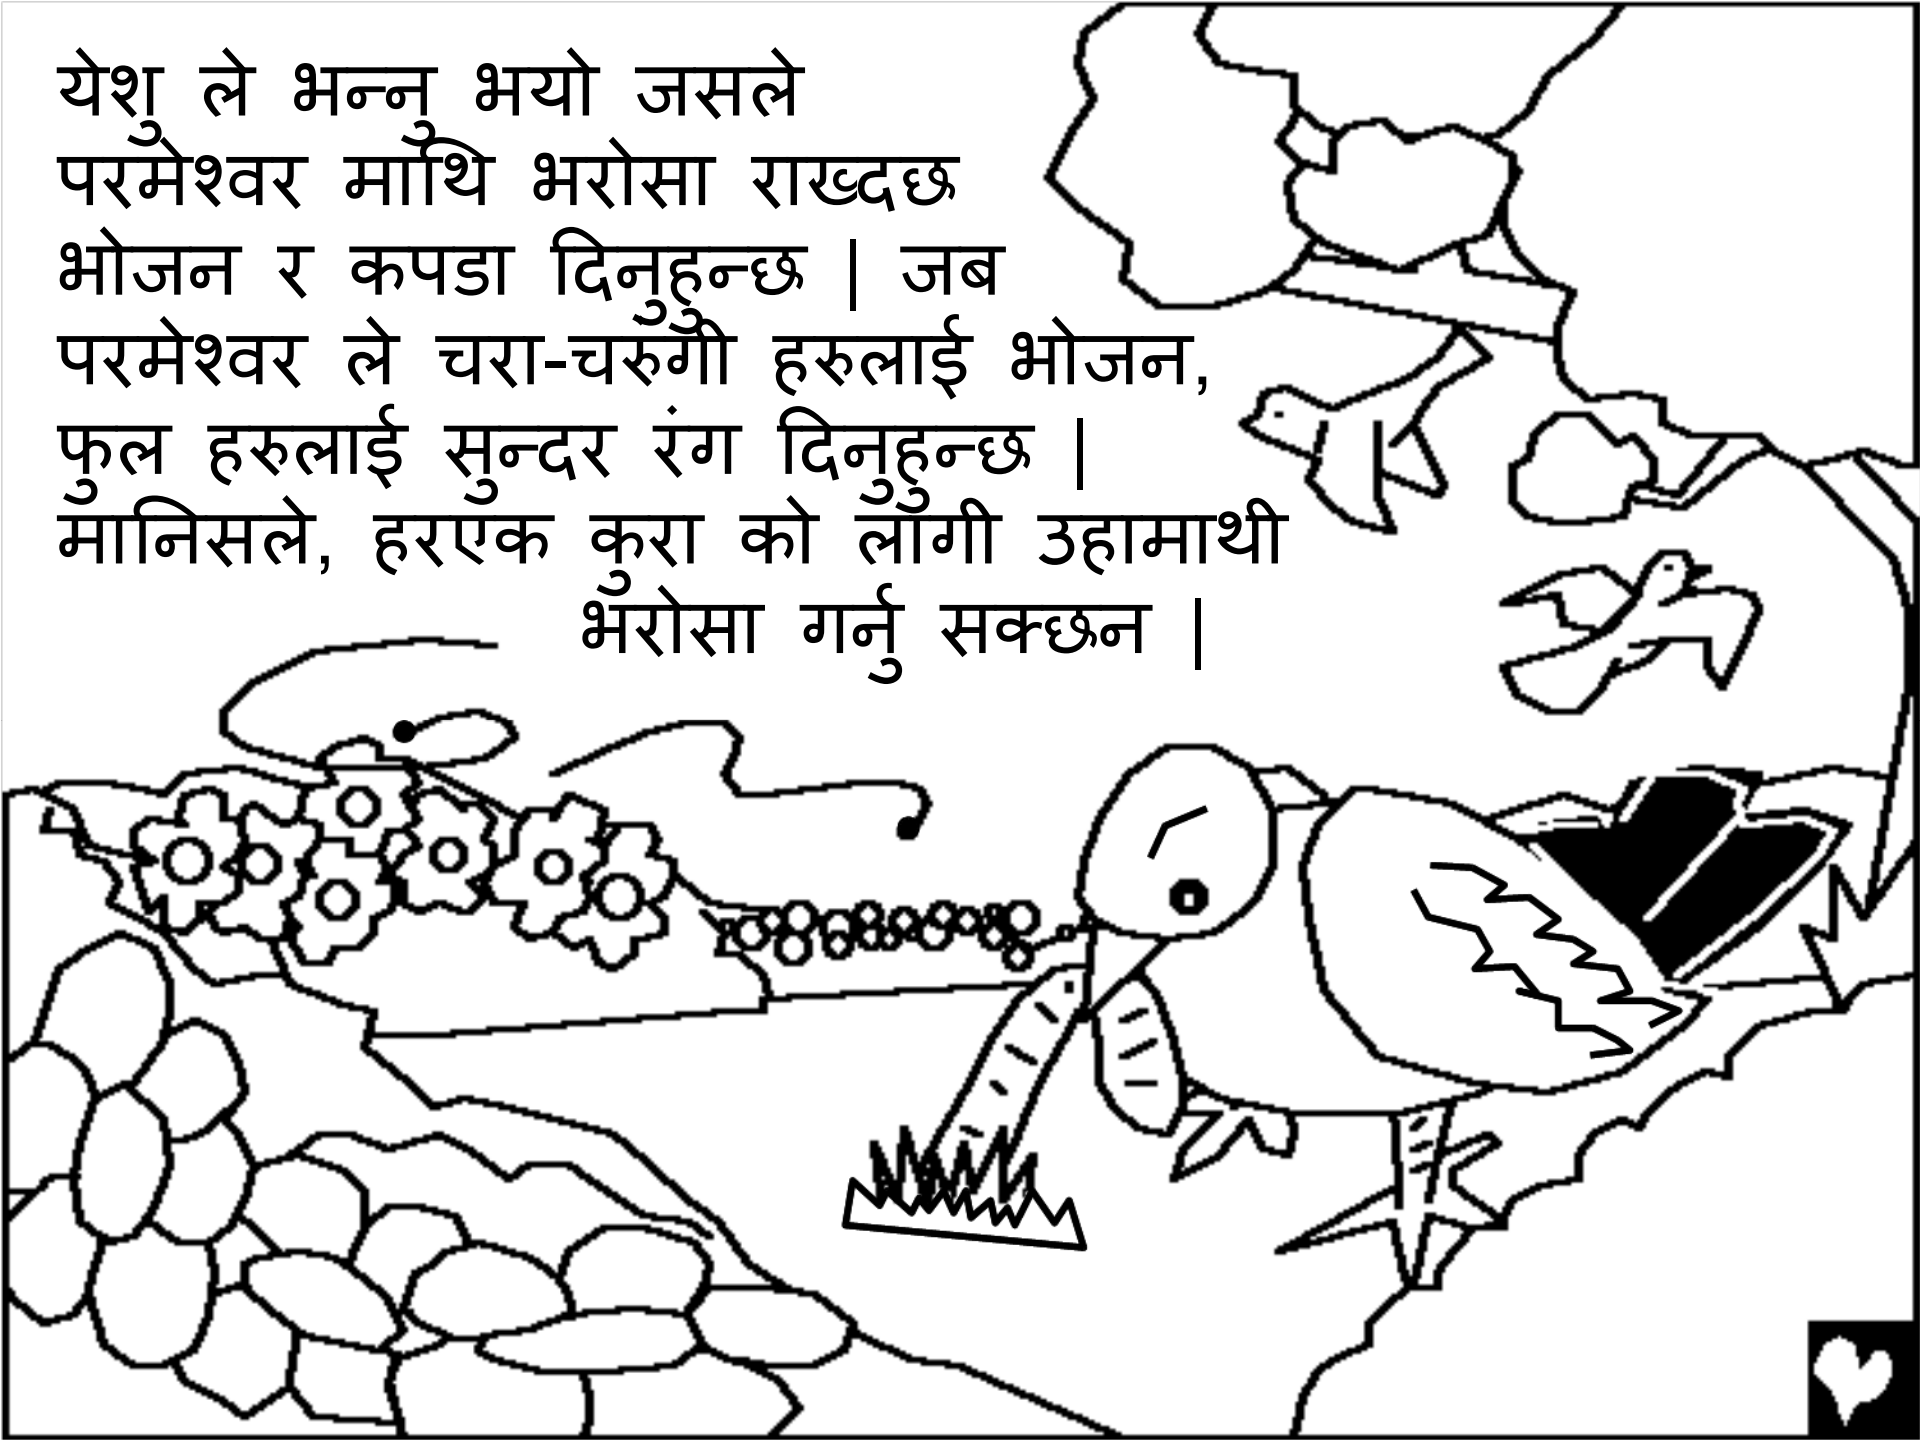 येशु ले भन्नु भयो जसले
परमेश्वर माथि भरोसा राख्दछ
भोजन र कपडा दिनुहुन्छ | जब
परमेश्वर ले चरा-चरुगी हरुलाई भोजन,
फुल हरुलाई सुन्दर रंग दिनुहुन्छ |
मानिसले, हरएक कुरा को लागी उहामाथी
भरोसा गर्नु सक्छन |